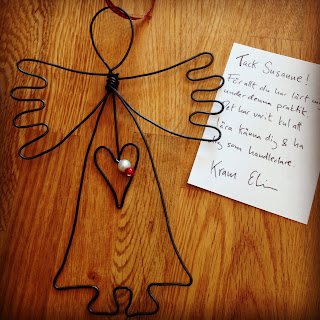 Tack Susanne!
För allt du har lärt mig
under denna praktik
Det har varit kul att
lära känna dig & ha
dig som handledare.
Kram Elin